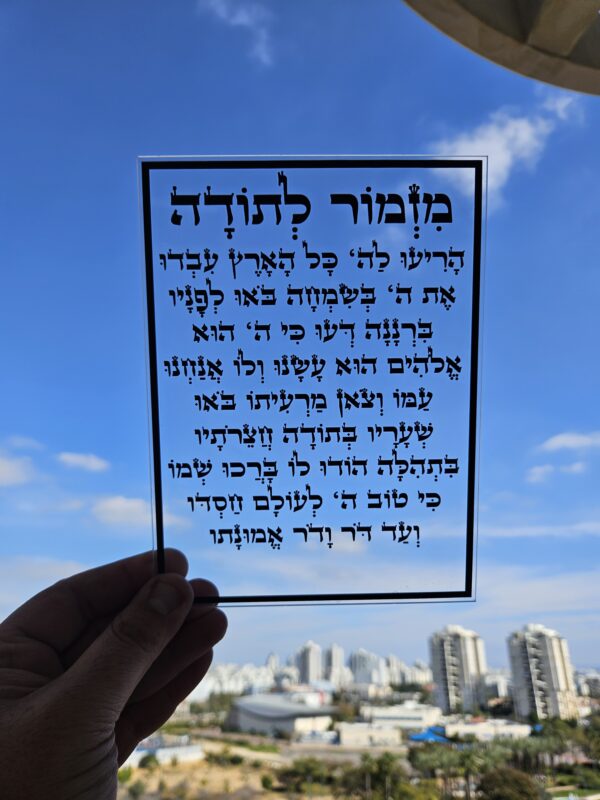 מִזְמוֹר לְתוֹדָה
הָרִיעוּ לַה' כָּל הָאָרֶץ עִבְדוּ
אֶת ה' בְּשִׂמְחָה בֹּאוּ לְפָנָיו
בִּרְנָנָה דְּעוּ כִּי ה' הוּא
אֱלֹהִים הוּא עָשָׂנוּ וְלוֹ אֲנַחְנוּ
עַמּוֹ וְצֹאן מַרְעִיתוֹ בֹּאוּ
שְׁעָרָיו בְּתוֹדָה חֲצֵרֹתָיו
בִּתְהִלָּה הוֹדוּ לוֹ בָּרֲכוּ שְׁמוֹ
כִּי טוֹב ה' לְעוֹלָם חַסְדּוֹ
וְעַד דֹּר וָדֹר אֱמוּנָתוֹ